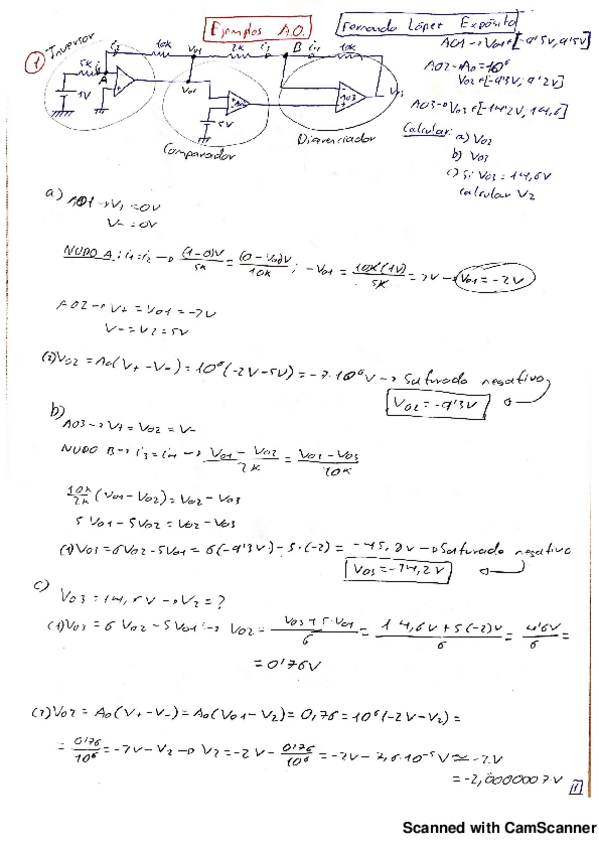 Ejemplos A.O.
Fernando López Expósito
1
Inversor
AO1→Vo1 ∈[-9'5V, 9'5V]
AO2→Ao=10⁶
Vo2 ∈[-9'3V, 9'2V]
AO3→Vo3 ∈[-14'2V, 14,6]
Calcular: a) Vo2
b) Vo3
c) Si Vo3 = 14,6V
calcular V2
i2
10k
Vo1
2k
i3
B
i4
10k
5k
A
1V
Vo1
AO2
AO3
Vo3
5V
Comparador
Diferenciador
a) AO1→V+ = 0V
V- = 0V
NUDO A: i1=i2 → (1-0)V/5k = (0-Vo1)V/10k ; -Vo1 = 10k(1V)/5k = 2V → Vo1 = -2V
AO2→V+ = Vo1 = -2V
V- = V2 = 5V
(2) Vo2 = Ao(V+ - V-) = 10⁶(-2V-5V) = -7·10⁶V → Saturado negativo
Vo2 = -9'3V
b)
AO3→V+ = Vo2 = V-
NUDO B→ i3=i4 → Vo1 - Vo2/2k = Vo2 - Vo3/10k
10k/2k (Vo1-Vo2) = Vo2 - Vo3
5Vo1 - 5Vo2 = Vo2 - Vo3
(1) Vo3 = 6Vo2 - 5Vo1 = 6(-9'3V) - 5·(-2) = -45,8V → Saturado negativo
Vo3 = -14,2V
c)
Vo3 = 14,6V → V2 = ?
(1) Vo3 = 6Vo2 - 5Vo1 → Vo2 = Vo3+5·Vo1/6 = 14,6V+5(-2)V/6 = 4'6V/6 =
= 0'76V
(2) Vo2 = Ao(V+-V-) = Ao(Vo1-V2) = 0,76 = 10⁶(-2V-V2) =
= 0'76/10⁶ = -2V-V2 → V2 = -2V - 0'76/10⁶ = -2V - 7,6·10⁻⁵V ≃ -2V
= -2,0000007V
1
Scanned with CamScanner